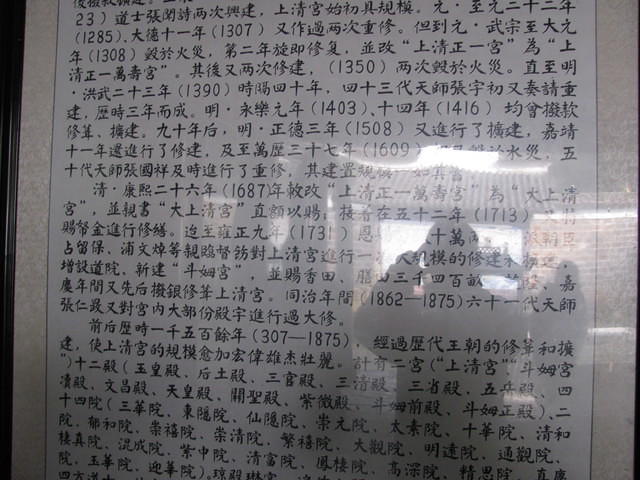 後撥款擴建。
23）道士張聞詩两次興建，上清宫始初具規模。元·至元二十二年
(1285)、大德十一年（1307）又作過两次重修。但到元·武宗至大元
年（1308）毀於火災，第二年旋即修复，並改“上清正一宫”為“上
清正一萬壽宫”。其後又两次修建，（1350）两次毀於火災。直至明
·洪武二十三年（1390）時隔四十年，四十三代天師張宇初又奏請重
建，歷時三年而成。明·永樂元年（1403）、十四年（1416）均曾撥款
修葺、擴建。九十年后，明·正德三年（1508）又進行了擴建，嘉靖
十一年還進行了修建，及至萬歷三十七年（1609）毀於水災，五
十代天師張國祥及時進行了重修，其建置規模一如其舊。
清·康熙二十六年（1687)年敕改“上清正一萬壽宫”為“大上清
宫”，並親書“大上清宫”直額以賜；接着在五十二年（1713）又
賜帑金進行修繕。迨至雍正九年（1731）恩十萬
占留保、浦文焯等親臨督飭對上清宫進行一大規模的修建
增設道院，新建“斗姆宫”，並賜香田、三千四百畝。嘉
慶年間又先后撥銀修葺上清宫。同治年間（1862—1875）六十一代天師
張仁晸又對宫内大部份殿宇進行過大修。
前后歷時一千五百餘年（307—1875），經過歷代王朝的修葺和擴
建，使上清宫的規模愈加宏偉雄杰壯麗。計有二宫（“上清宫”“斗姆宫
”）十二殿（玉皇殿、后土殿、三官殿、三清殿、三省殿、五兵殿、四
瀆殿、文昌殿、天皇殿、關聖殿、紫微殿、斗姆前殿、斗姆正殿）、二
十四院（三華院、東隱院、仙隱院、崇元院、太素院、十華院、清和
院、郁和院、崇禧院、崇清院、繁禧院、大觀院、明遠院、通觀院、
棲真院、混成院、紫中院、清富院、鳳棲院、高深院、精思院、真慶
院、玉華院、迎華院）。